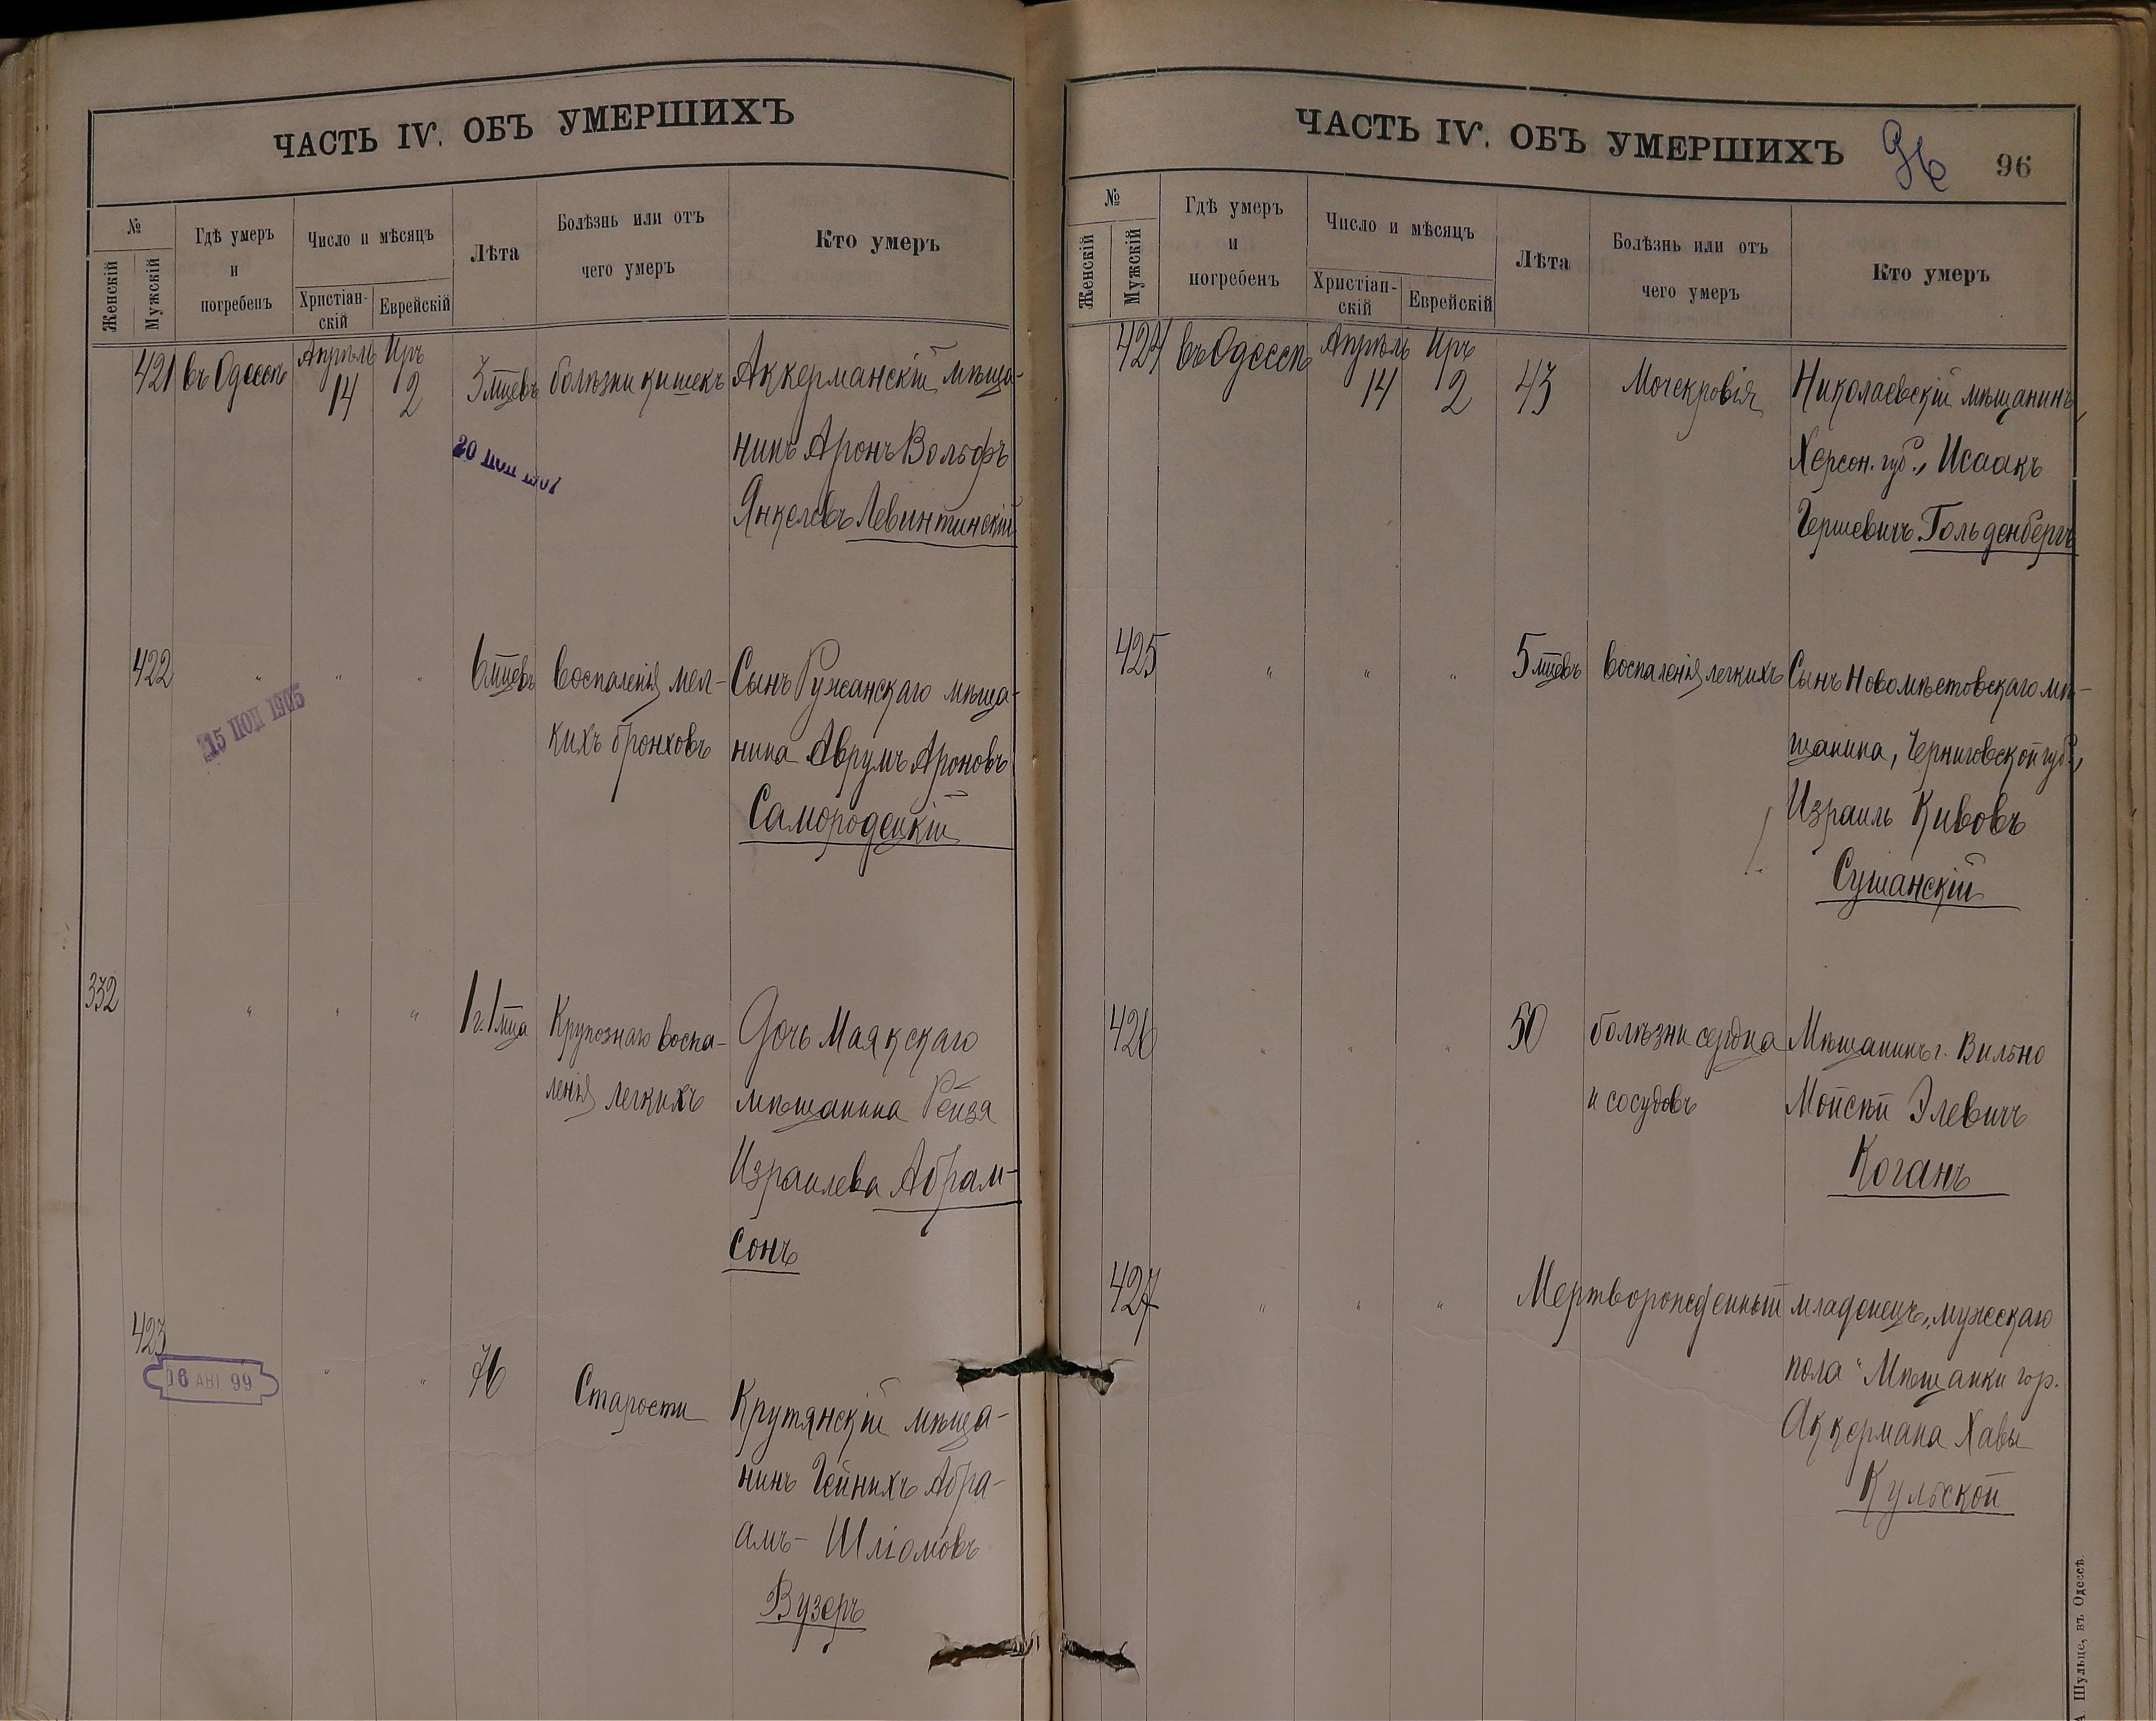 ЧАСТЬ IV. ОБЪ УМЕРШИХЪ
№
Женскій
Мужскій
Гдѣ умеръ
и
погребенъ
Число и мѣсяцъ
Христіан-
скій
Еврейскій
Лѣта
Болѣзнь или отъ
чего умеръ
Кто умеръ
421 въ Одессѣ Апрѣль 14 Иръ 2 3 мцевъ болѣзни кишекъ Аккерманскій мѣща-
нинъ Аронъ Вольфъ
Янкелевъ Левинтинскій
422 " " " 6 мцевъ воспаленія мел- Сынъ Ружанскаго мѣща-
кихъ бронховъ нина Аврумъ Ароновъ
15 1905
Самородецкій
332 " " " 1 г. 1 мца Крупознаго воспа- Дочь Маякскаго
ленія легкихъ мѣщанина Рейзя
Израилева Абрам-
сонъ
423 " " 76 Старости Крутянскій мѣща-
06 АВГ 99
нинъ Гейнихъ Абра-
амъ-Шліомовъ
Вузеръ
ЧАСТЬ IV. ОБЪ УМЕРШИХЪ 96 96
№
Женскій
Мужскій
Гдѣ умеръ
и
погребенъ
Число и мѣсяцъ
Христіан-
скій
Еврейскій
Лѣта
Болѣзнь или отъ
чего умеръ
Кто умеръ
424 въ Одессѣ Апрѣль 14 Иръ 2 43 Мочекровія Николаевскій мѣщанинъ,
Херсон. губ., Исаакъ
Гершевичъ Гольденбергъ
425 " " " 5 мцевъ воспаленія легкихъ Сынъ Новомѣстовскаго мѣ-
щанина, Черниговской губ.,
Израиль Кивовъ
Сушанскій
426 " " " 50 болѣзни сердца Мѣщанинъ г. Вильно
и сосудовъ Мойсѣй Элевичъ
Коганъ
427 " " " Мертворожденный младенецъ „мужескаго
пола“ Мѣщанки гор.
Аккермана Хавы
Кульской
А. Шульце, въ Одессѣ.